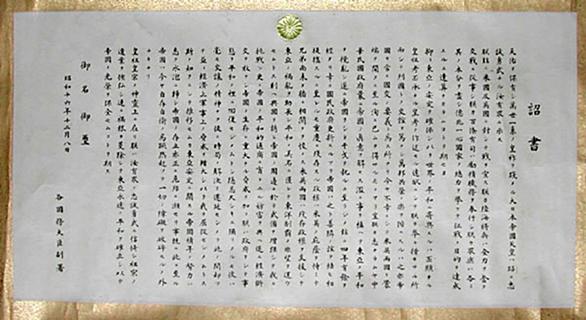 詔書
天佑ヲ保有シ萬世一系ノ皇祚ヲ踐メル大日本帝國天皇ハ昭ニ忠
誠勇武ナル汝有眾ニ示ス
朕茲ニ米國及英國ニ對シテ戰ヲ宣ス朕カ陸海將兵ハ全力ヲ奮テ
交戰ニ從事シ朕カ百僚有司ハ勵精職務ヲ奉行シ朕カ眾庶ハ各〻
其ノ本分ヲ盡シ億兆一心國家ノ總力ヲ擧ケテ征戰ノ目的ヲ達成
スルニ遺算ナカラムコトヲ期セヨ
抑〻東亞ノ安定ヲ確保シ以テ世界ノ平和ニ寄與スルハ丕顯ナル
皇祖考丕承ナル皇考ノ作述セル遠猷ニシテ朕カ拳々措カサル所
而シテ列國トノ交誼ヲ篤クシ萬邦共榮ノ樂ヲ偕ニスルハ之亦帝
國カ常ニ國交ノ要義ト爲ス所ナリ今ヤ不幸ニシテ米英兩國ト釁
端ヲ開クニ至ル洵ニ已ムヲ得サルモノアリ豈朕カ志ナラムヤ中
華民國政府曩ニ帝國ノ眞意ヲ解セス濫ニ事ヲ構ヘテ東亞ノ平和
ヲ攪亂シ遂ニ帝國ヲシテ干戈ヲ執ルニ至ラシメ茲ニ四年有餘ヲ
經タリ幸ニ國民政府更新スルアリ帝國ハ之ト善隣ノ誼ヲ結ヒ相
提携スルニ至レルモ重慶ニ殘存スル政權ハ米英ノ庇蔭ヲ恃ミテ
兄弟尚未タ牆ニ相鬩クヲ悛メス米英兩國ハ殘存政權ヲ支援シテ
東亞ノ禍亂ヲ助長シ平和ノ美名ニ匿レテ東洋制覇ノ非望ヲ逞ウ
セムトス剩ヘ與國ヲ誘ヒ帝國ノ周邊ニ於テ武備ヲ增強シテ我ニ
挑戰シ更ニ帝國ノ平和的通商ニ有ラユル妨害ヲ與ヘ遂ニ經濟斷
交ヲ敢テシ帝國ノ生存ニ重大ナル脅威ヲ加フ朕ハ政府ヲシテ事
態ヲ平和ノ裡ニ囘復セシメムトシ隱忍久シキニ彌リタルモ彼ハ
毫モ交讓ノ精神ナク徒ニ時局ノ解決ヲ遷延セシメテ此ノ間却ツ
テ益〻經濟上軍事上ノ脅威ヲ增大シ以テ我ヲ屈從セシメムトス
斯ノ如クニシテ推移セムカ東亞安定ニ關スル帝國積年ノ努力ハ
悉ク水泡ニ歸シ帝國ノ存立亦正ニ危殆ニ瀕セリ事既ニ此ニ至ル
帝國ハ今ヤ自存自衞ノ爲蹶然起ツテ一切ノ障礙ヲ破碎スルノ外
ナキナリ
皇祖皇宗ノ神靈上ニ在リ朕ハ汝有眾ノ忠誠勇武ニ信倚シ祖宗ノ
遺業ヲ恢弘シ速ニ禍根ヲ芟除シテ東亞永遠ノ平和ヲ確立シ以テ
帝國ノ光榮ヲ保全セムコトヲ期ス
御名御璽
昭和十六年十二月八日
各國務大臣副署